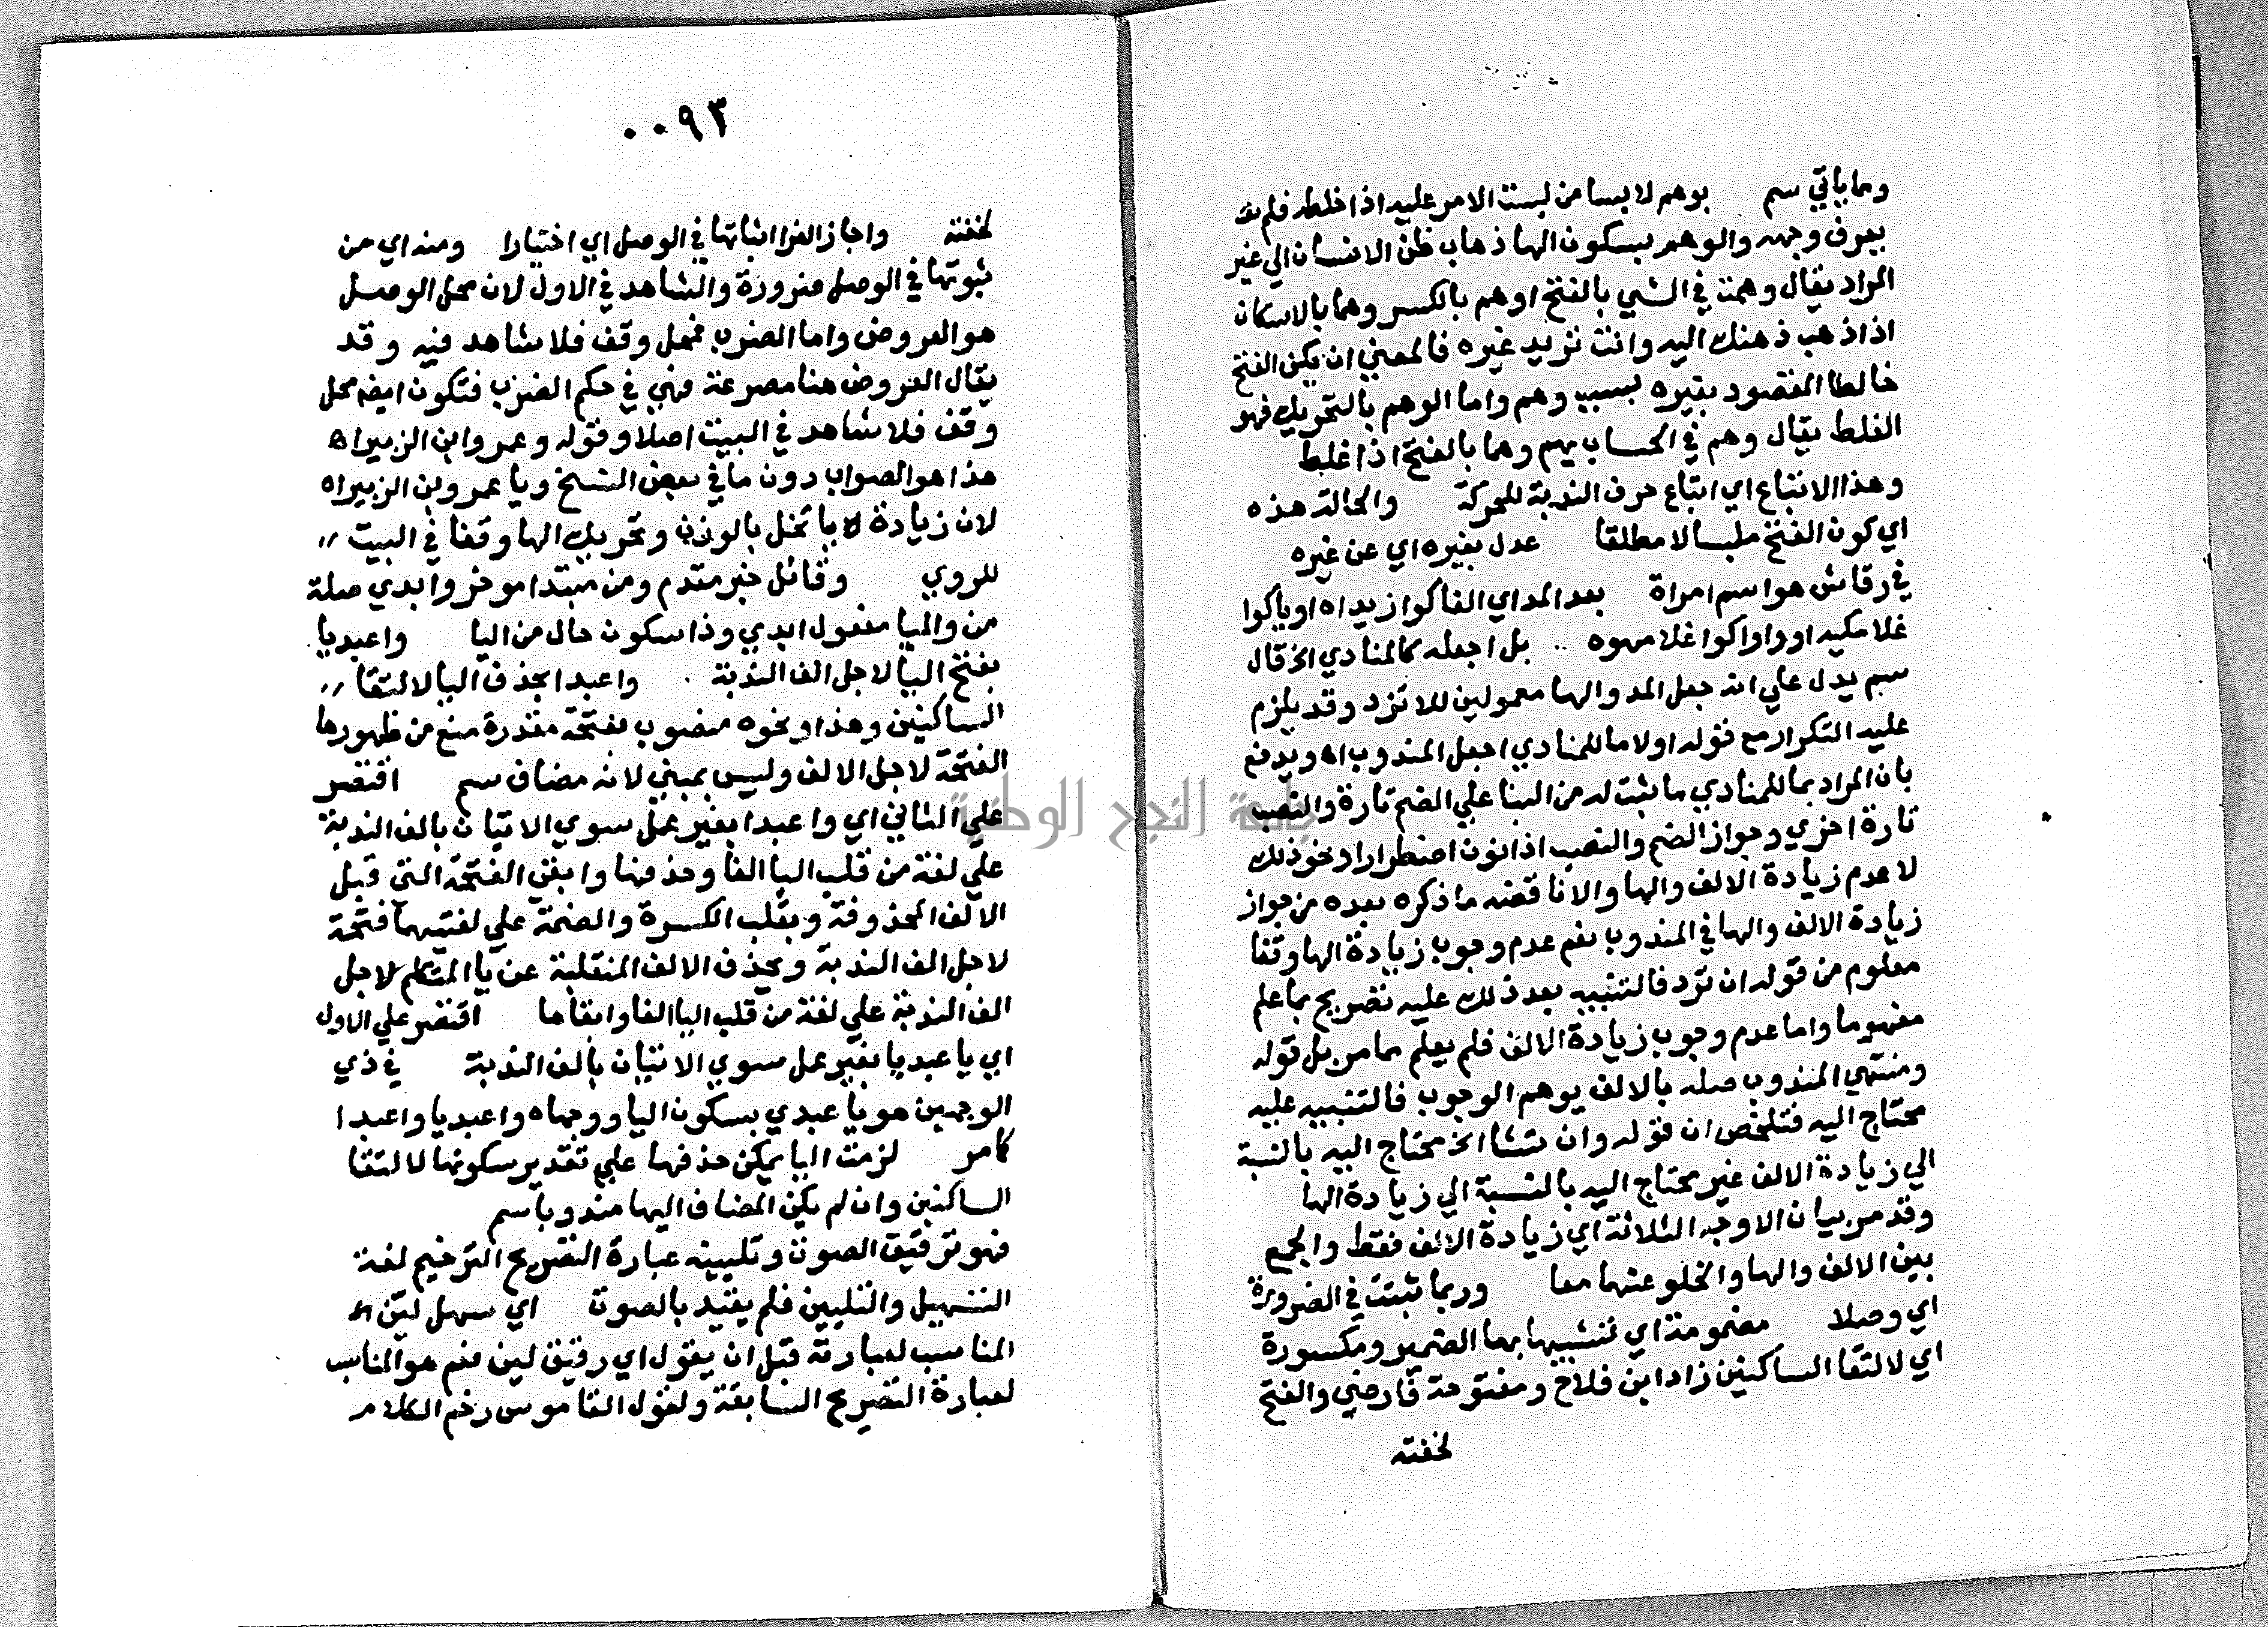 وما ياتي سم بوهم لابسا من لبست الامر عليه اذا خلطه فلم
يعرف وجهه والوهم بسكون الها ذهاب ظن الانسان الي غير
المراد يقال وهمت في الشي بالفتح اوهم بالكسر وهما بالاسكان
اذا ذهب ذهنك اليه وانت تريد غيره فالمعني ان يكن الفتح
خالطا المقصود بغيره بسبب وهم واما الوهم بالتحريك فهو
الغلط يقال وهم في الحساب يهم وهما بالفتح اذا غلط
وهذا الاتباع اي اتباع حرف الندبة للحركة والحالة هذه
اي كون الفتح ملبسا لا مطلقا عدل بغيره اي عن غيره
في رقاش هو اسم امراة بعد المد اي الفا كوا زيداه او ياكوا
غلامكيه او واوا كوا غلامهوه بل اجعله كالمنادي الخ قال
سم يدل علي انه جعل المد والها معمولين للا تزد وقد يلزم
عليه التكرار مع قوله اولا ما للمنادي اجعل المندوب اه ويدفع
بان المراد بما للمنادي ما يثبت له من البنا علي الضم تارة والنصب
تارة اخري وجواز الضم والنصب اذا نون اضطرارا ونحو ذلك
لا عدم زيادة الالف والها والا ناقضه ما ذكره بعده من جواز
زيادة الالف والها في المندوب نعم عدم وجوب زيادة الها وقفا
معلوم من قوله ان ترد فالتنبيه بعد ذلك عليه تصريح بما علم
مفهوما واما عدم وجوب زيادة الالف فلم يعلم مما مر بل قوله
ومنتهي المندوب صله بالالف يوهم الوجوب فالتنبيه عليه
محتاج اليه فتلخص ان قوله وان تشا الخ محتاج اليه بالنسبة
الي زيادة الالف غير محتاج اليه بالنسبة الي زيادة الها
وقد مر بيان الاوجه الثلاثة اي زيادة الالف فقط والجمع
بين الالف والها والخلو عنهما معا وربما ثبتت في الضرورة
اي وصلا مضمومة اي تشبيها بها الضمير ومكسورة
اي لالتقا الساكنين زاد ابن فلاح ومفتوحة فارضي والفتح
لخفته
٠٠٩٣
لخفته واجاز الفرا اثباتها في الوصل اي اختيارا ومنه اي من
ثبوتها في الوصل ضرورة والشاهد في الاول لان محل الوصل
هو العروض واما الضرب فمحل وقف فلا شاهد فيه وقد
يقال العروض هنا مصرعة فهي في حكم الضرب فتكون ايضا محل
وقف فلا شاهد في البيت اصلا وقوله وعمرو ابن الزبيراه
هذا هو الصواب دون ما في بعض النسخ ويا عمرو بن الزبيراه
لان زيادة يا تخل بالوزن وتحريك الها وقفا في البيت
للروي وقائل خبر مقدم ومن مبتدا موخر وابدي صلة
من واليا مفعول ابدي وذا سكون حال من اليا واعبديا
بفتح اليا لاجل الف الندبة واعبدا بحذف اليا لالتقا
الساكنين وهذا ونحوه منصوب بفتحة مقدرة منع من ظهورها
الفتحة لاجل الالف وليس بمبني لانه مضاف سم اقتصر
علي الثاني اي واعبدا بغير عمل سوي الاتيان بالف الندبة
علي لغة من قلب اليا الفا وحذفها وابقي الفتحة التي قبل
الالف المحذوفة وبقلب الكسرة والضمة علي لغتيهما فتحة
لاجل الف الندبة وبحذف الالف المنقلبة عن يا المتكلم لاجل
الف الندبة علي لغة من قلب اليا الفا وابقاها اقتصر علي الاول
اي يا عبديا بغير عمل سوي الاتيان بالف الندبة في ذي
الوجهين هو يا عبدي بسكون اليا ووجهاه واعبديا واعبدا
كامر لزمت اليا يمكن حذفها علي تقدير سكونها لالتقا
الساكنين وان لم يكن المضاف اليها مندوبا سم
فهو ترقيق الصوت وتليينه عبارة التصريح الترخيم لغة
التسهيل والتليين فلم يقيد بالصوت اي سهل لين
المناسب لعبارته قبل ان يقول اي رقيق لين نعم هو المناسب
لعبارة التصريح السابقة ولقول القاموس رخم الكلام
جامعة النجاح الوطنية